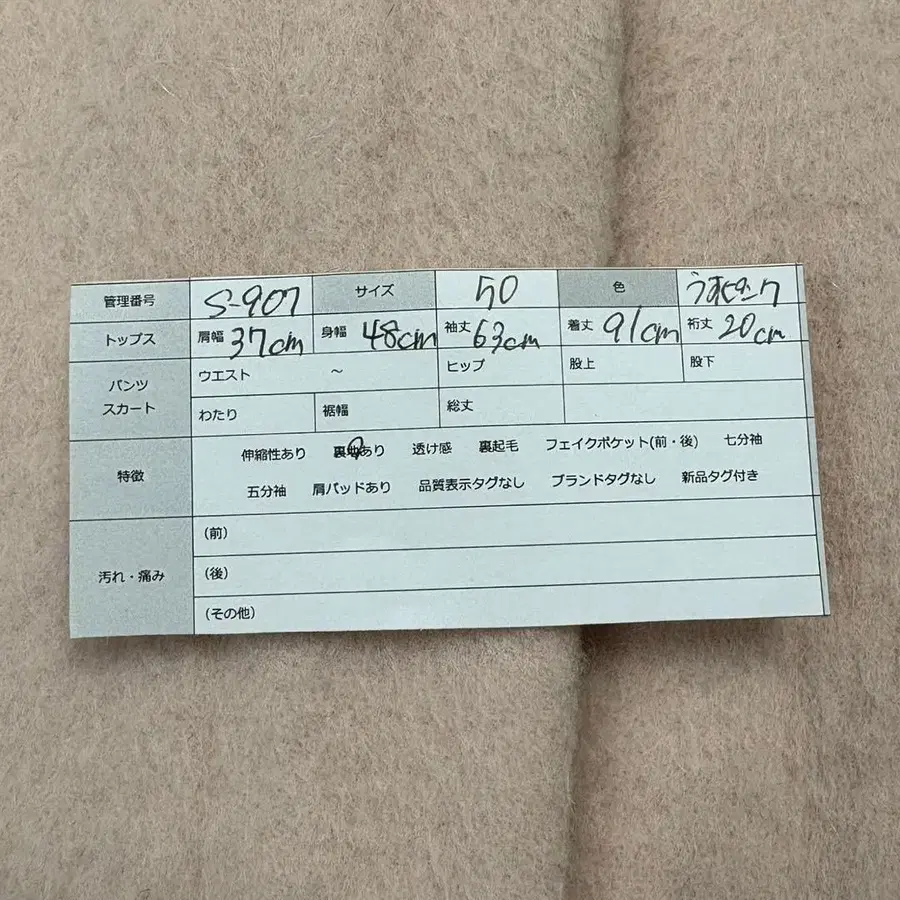 管理番号 S-907 サイズ 50 色 うすピンク
トップス 肩幅 37cm 身幅 48cm 袖丈 63cm 着丈 91cm 裄丈 20cm
パンツ スカート ウエスト ～ ヒップ 股上 股下
わたり 裾幅 総丈
特徴 伸縮性あり 裏地あり 透け感 裏起毛 フェイクポケット(前・後) 七分袖
五分袖 肩パッドあり 品質表示タグなし ブランドタグなし 新品タグ付き
汚れ・痛み (前)
(後)
(その他)